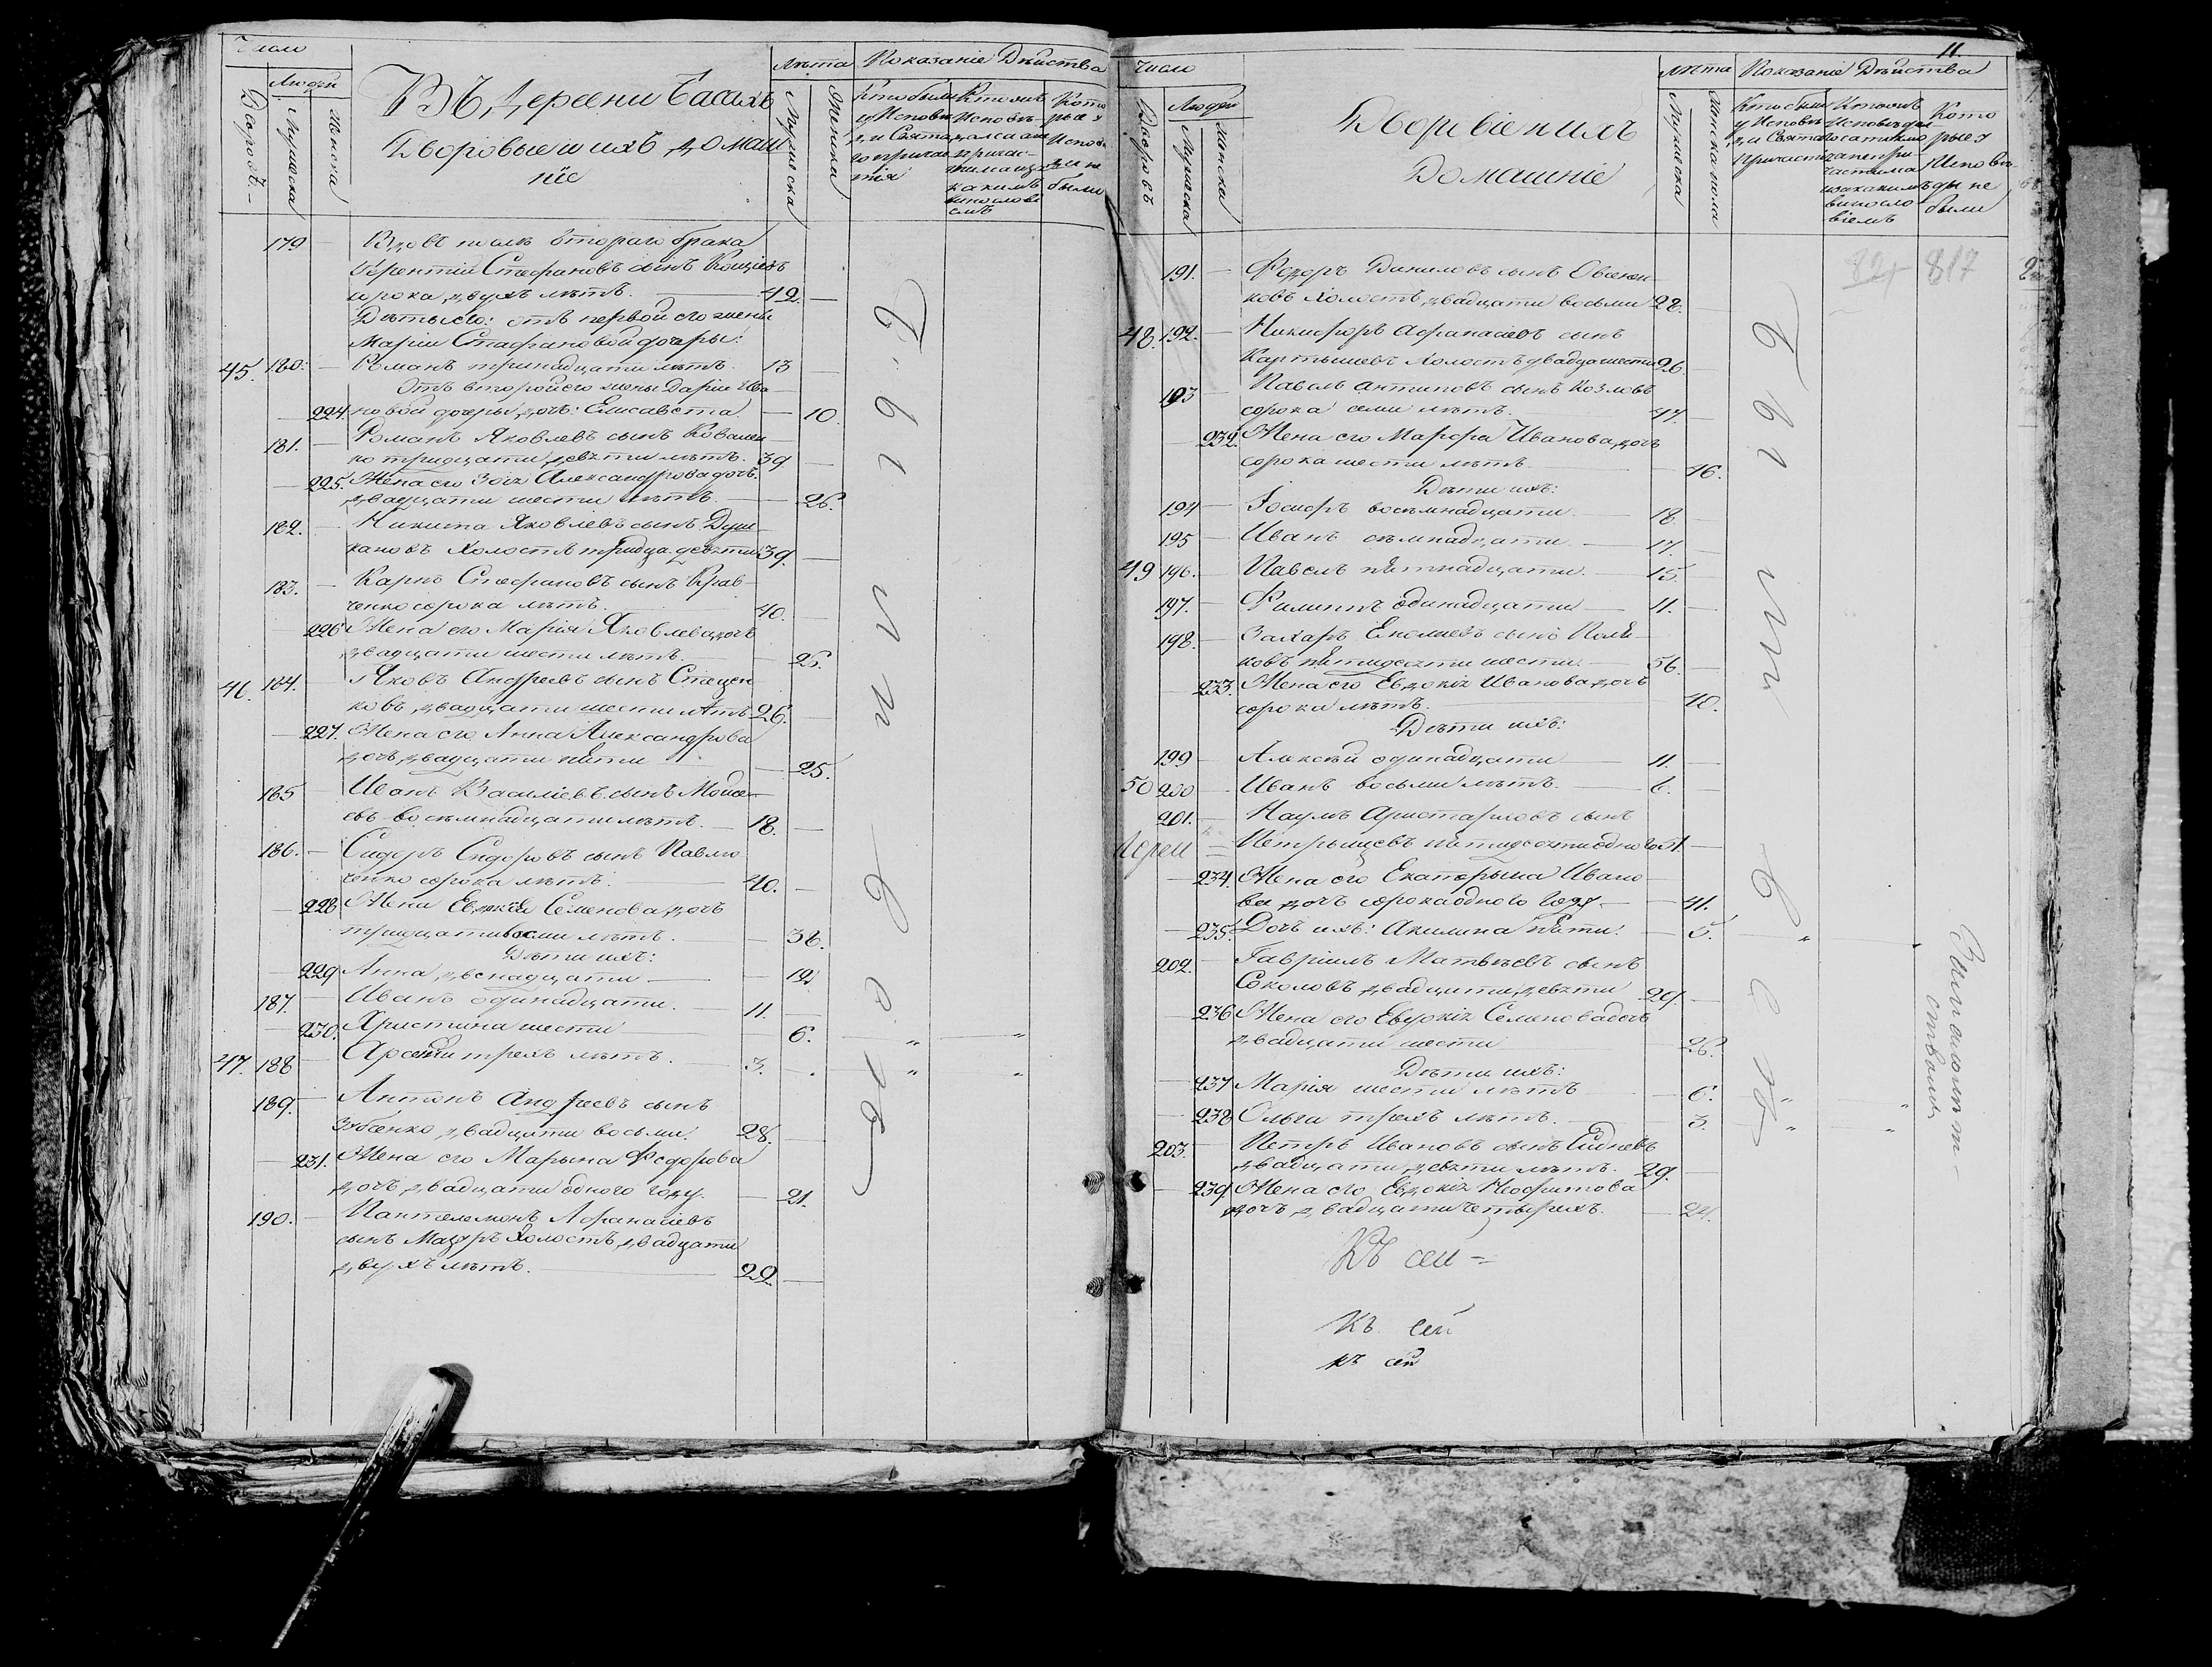 Число
Людей
Дворовъ
Мужеска
Женска
Въ Деревни Басахъ
Дворовые и ихъ домаш
ніе
Лѣта
Мужеска
Женска
Показаніе Дѣйства
Кто были
у Исповѣ
ди и Свята
го причас
тія
Кто
Исповѣ
дался а не
причас
какимъ
винослові
емъ
Кото
рые у
Испові
ди не
были
179 — Вдовъ послѣ втораго брака
Терентій Стефановъ сынъ
сорока двухъ лѣтъ. — 42. —
Дѣты его: отъ первой его жены
Маріи Стефановой дочеры:
45. 180. — Романъ тринадцати лѣтъ. 13 —
Отъ второй его жены Даріи Ива
— 224. новой дочеры, дочь: Елисавета — 10.
181. — Романъ Яковлевъ сынъ Ковален
ко тридцати девяти лѣтъ. 39 —
— 225. Жена его Зоія Александрова дочь
двадцати шести лѣтъ. — 26.
182. — Никита Яковлевъ сынъ Душ
кановъ Холостъ тридца девяти 39. —
183. — Карпъ Стефановъ сынъ Крав
ченко сорока лѣтъ. 40. —
226 Жена его Марія Яковлева дочь
двадцати шести лѣтъ. — 26.
46. 184. — Яковъ Андреевъ сынъ Стецен
ковъ двадцати шести лѣтъ 26. —
— 227. Жена его Анна Александрова
дочь двадцати пяти — 25.
185 — Иванъ Василіевъ сынъ Моисе
евъ восемнадцати лѣтъ. — 18. —
186. — Сидоръ Сидоровъ сынъ Павлю
ченко сорока лѣтъ. — 40. —
228 Жена Евдокія Семенова дочь
тридцати восми лѣтъ. — 38.
Дѣти ихъ:
— 229 Анна двенадцати — 12.
187. — Иванъ одинадцати. — 11. —
— 230. Христина шести — 6. — „ — „
47. 188 — Арсеній трехъ лѣтъ. — 3. — „ „
189. — Антонъ Андреевъ сынъ
Зубенко двадцати восьми. 28. —
— 231. Жена его Марына Федорова
дочь двадцати одного году. — 21.
190. — Пантелемонъ Афанасіевъ
сынъ Мазуръ Холостъ двадцати
двухъ лѣтъ. — 22. —
11.
Число
Людей
Дворовъ
Мужеска
Женска
Дворовіе и ихъ
Домашніе
Лѣта
Мужеска
Женска пола
Показаніе Дѣйства
Кто были
у Исповѣ
ди и Свята
го
причастія
Кто
Исповѣдал
ся
а не при
частился
и за какимъ
винosло
віемъ
Кото
рые у
Исповѣ
ды не
были
82, 817
191. — Федоръ Даниловъ сынъ Овсеен
ковъ Холостъ, двадцати восьми 28. —
48. 192. — Никифоръ Афанасіевъ сынъ
Картышевъ Холостъ двадца шести 26. —
193 — Павелъ Антиповъ сынъ Козловъ
сорока семи лѣтъ. — 47. —
— 232. Жена его Марфа Иванова дочь
сорока шести лѣтъ — 46.
Дѣти ихъ:
194 — Іосифъ восемнадцати. — 18. —
195 — Иванъ семнадцати — 17. —
49 196. — Павелъ пятнадцати. — 15. —
197. — Филиппъ одинадцати — 11. —
198. — Захаръ сынъ Поля
ковъ пятидесяти шести. — 56. —
— 233. Жена его Евдокія Иванова дочь
сорока лѣтъ. — 40.
Дѣти ихъ:
199 — Алексѣй одинадцати — 11. —
50 200 — Иванъ восьми лѣтъ. — 8. —
201. — Наумъ Аристарховъ сынъ
Петрыщевъ пятидесяти одного 51. —
— 234. Жена его Екатерына Ивано
ва дочь сорока одного году — 41.
— 235. Дочь ихъ: Акилина пяти. — 5. — „ — „
202. — Гавріилъ Матвѣевъ сынъ
Соколовъ двадцати девяти 29. —
— 236 Жена его Евдокія Семенова дочь
двадцати шести — 26.
Дѣти ихъ:
— 237 Марія шести лѣтъ — 6. — „ — „
— 238 Ольга трехъ лѣтъ. — 3. — „ — „
203. — Петръ Ивановъ сынъ
двадцати девяти лѣтъ. 29. —
— 239 Жена его Евдокія Неофитова
дочь двадцати четырехъ. — 24.
Къ сей =
Къ сей
къ сей